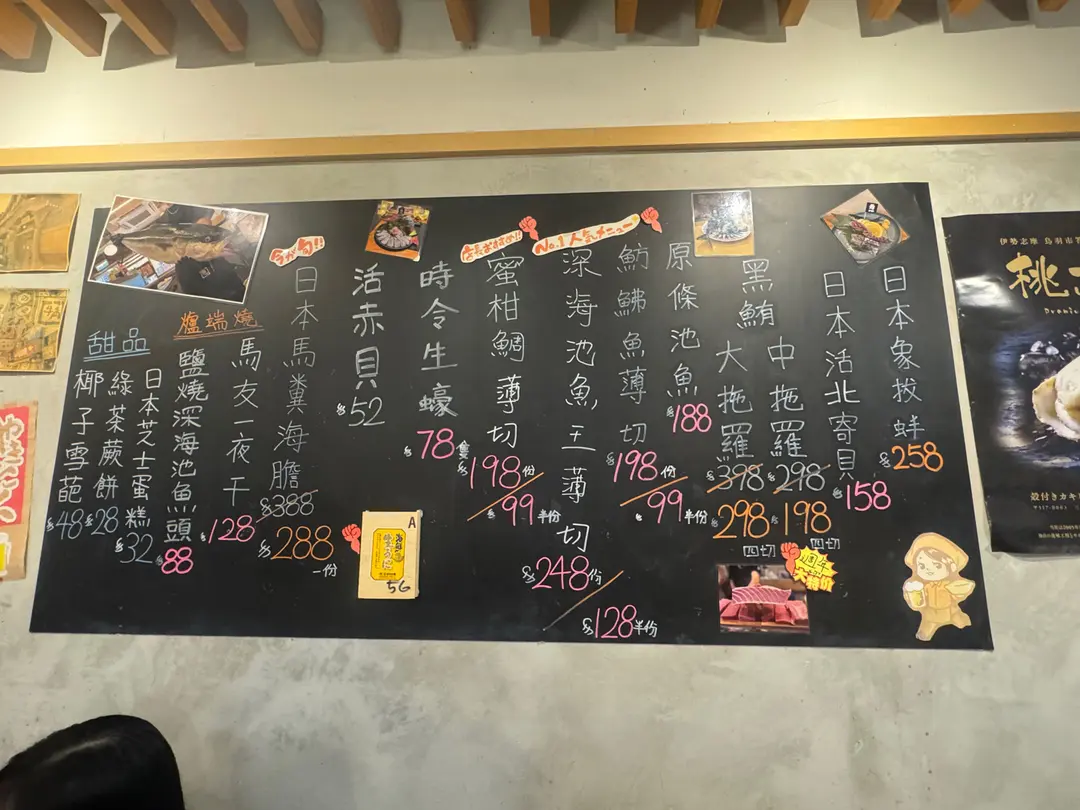 日本象拔蚌
$258
日本活北寄貝
$158
黑鮪
中拖羅
$298
$198
四切
大拖羅
$398
$298
四切
1周年
大特価
原條池魚
$188
魴鮄魚薄切
$198份
$99半份
No.1人気メニュー
深海池魚王薄切
$248份
$128半份
店長おすすめ!!
蜜柑鯛薄切
$198份
$99半份
時令生蠔
$78隻
活赤貝
$52
今が旬!!
日本馬糞海膽
$388
$288
一份
爐端燒
馬友一夜干
$128
鹽燒深海池魚頭
$88
甜品
日本芝士蛋糕
$32
綠茶蕨餅
$28
椰子雪葩
$48
A
56
伊勢志摩 鳥羽市
桃
殻付きカキ